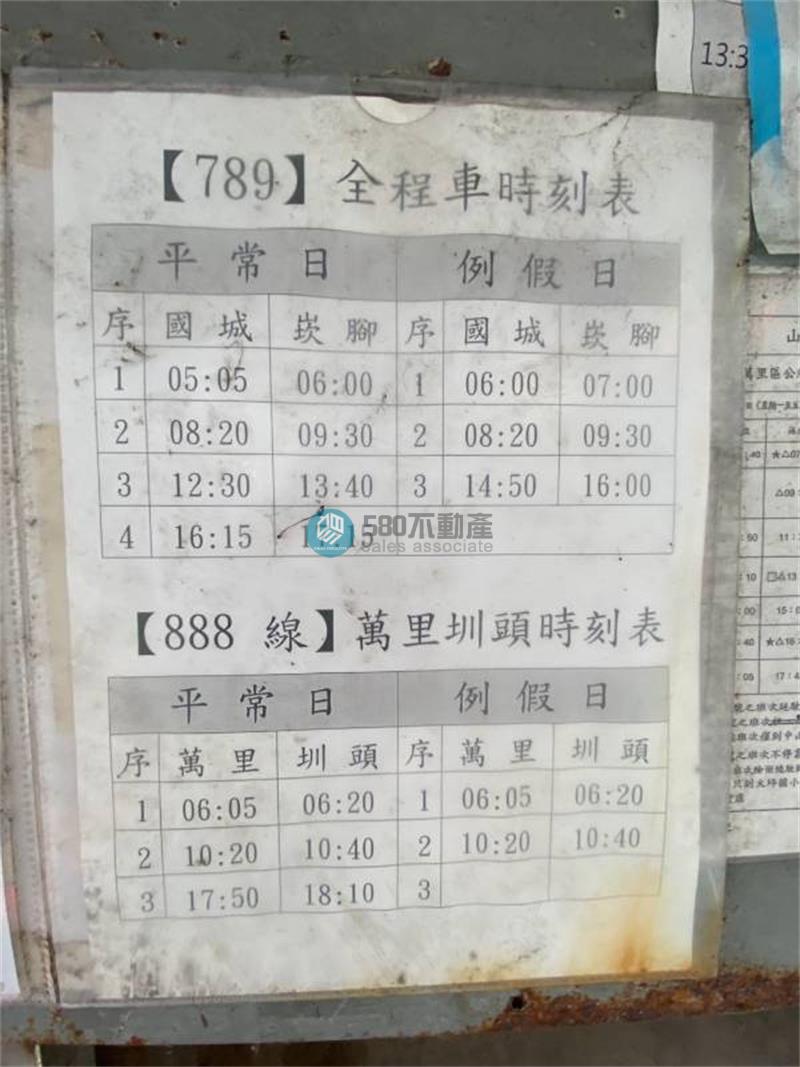 13:3
【789】全程車時刻表
平常日 例假日
序 國城 崁腳 序 國城 崁腳
1 05:05 06:00 1 06:00 07:00
2 08:20 09:30 2 08:20 09:30
3 12:30 13:40 3 14:50 16:00
4 16:15 17:15
580不動產
sales associate
【888 線】萬里圳頭時刻表
平常日 例假日
序 萬里 圳頭 序 萬里 圳頭
1 06:05 06:20 1 06:05 06:20
2 10:20 10:40 2 10:20 10:40
3 17:50 18:10 3
山
萬里區公